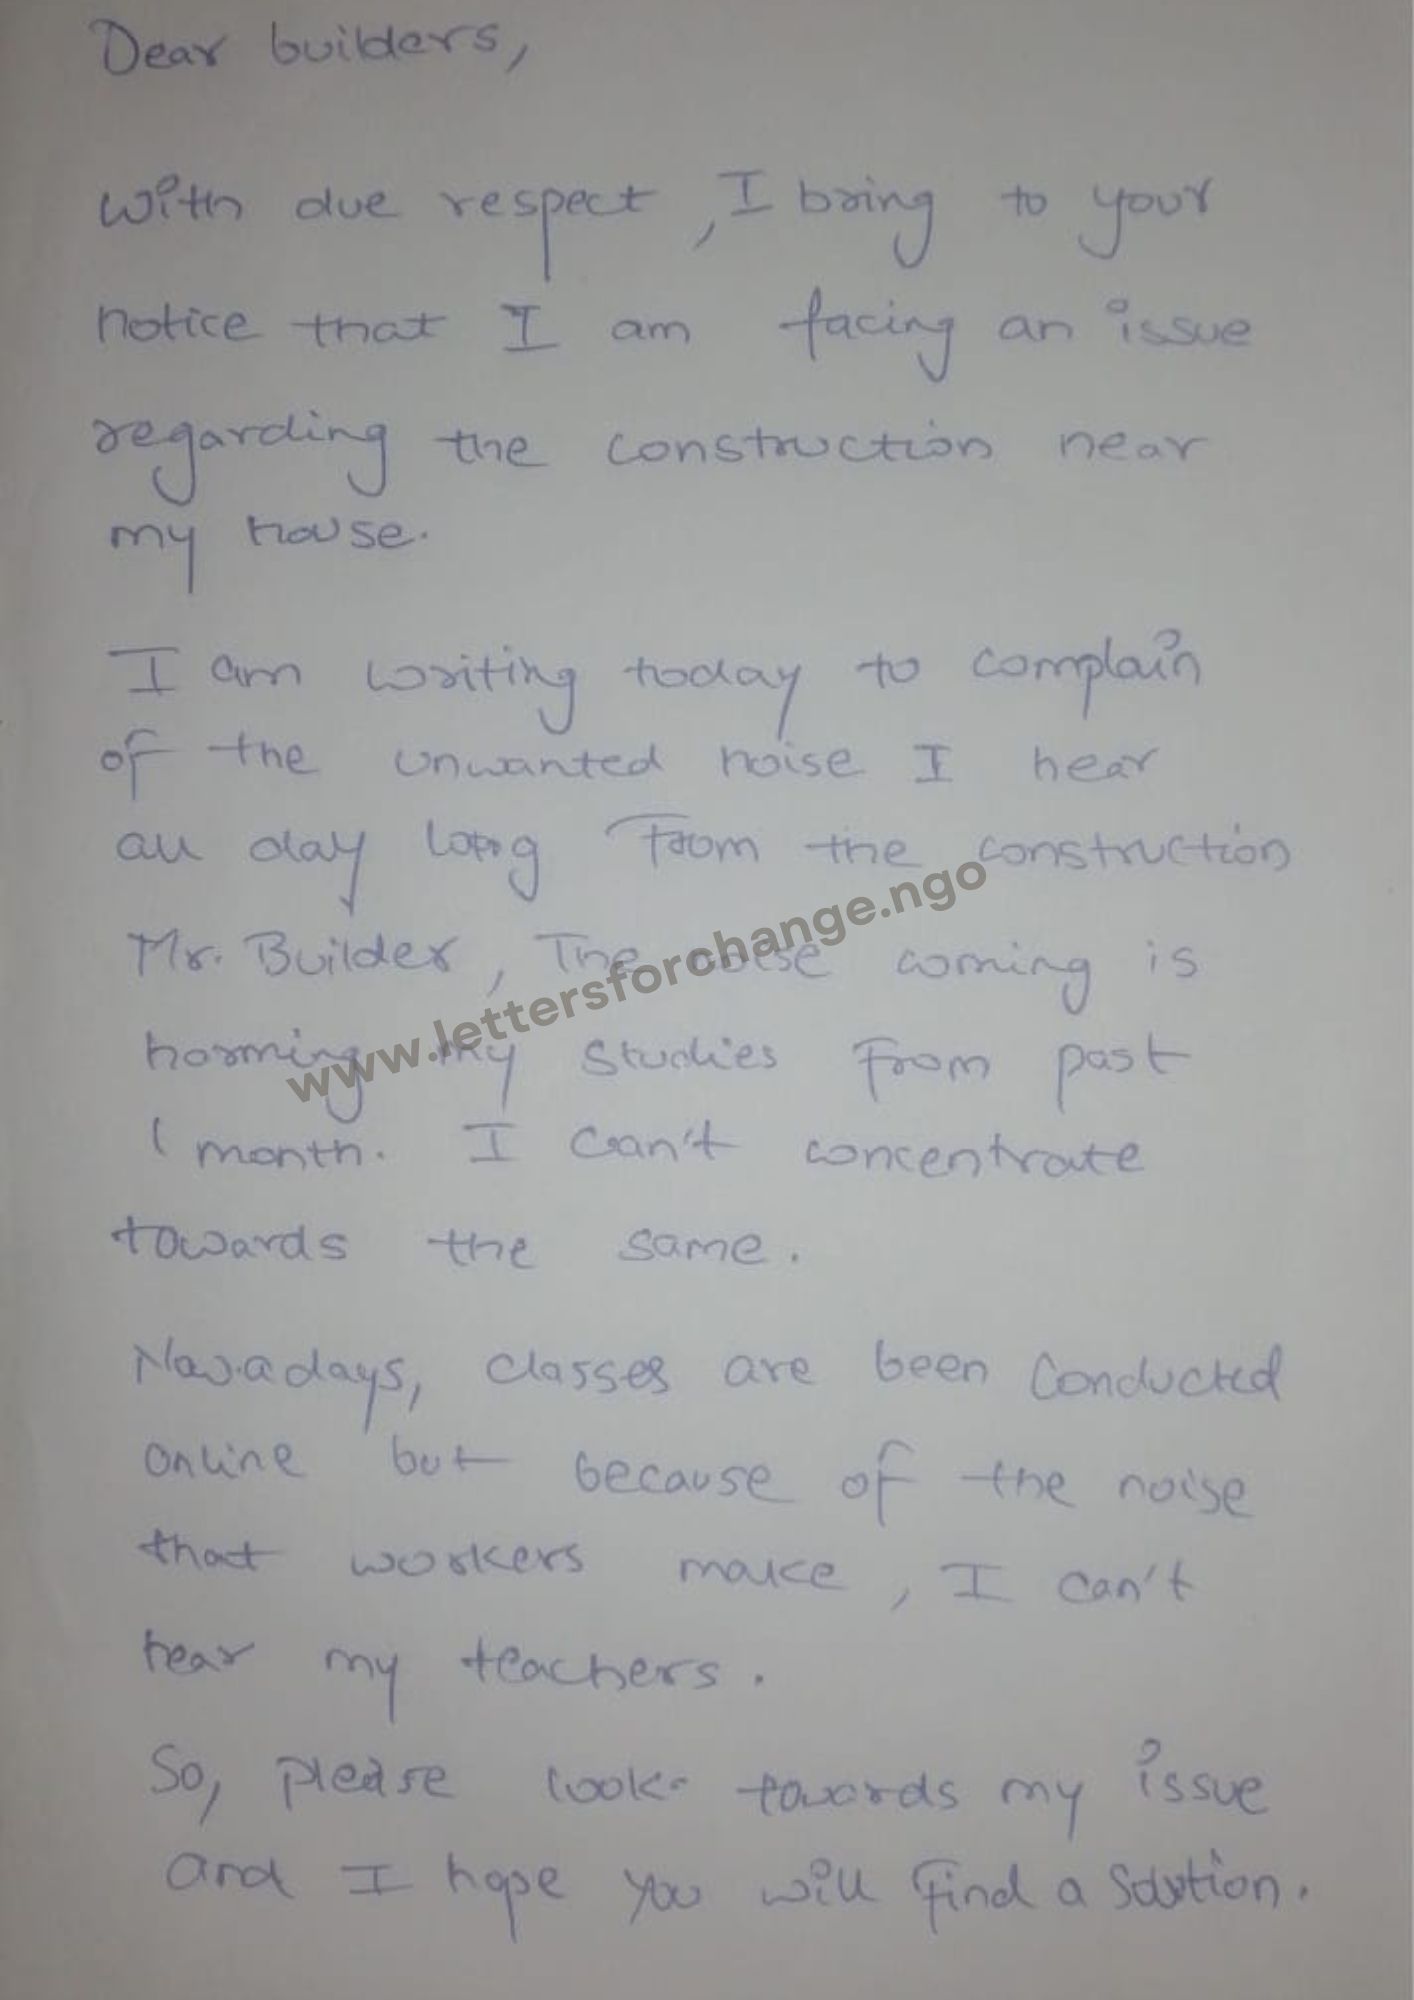 Dear builders,
With due respect, I bring to your
notice that I am facing an issue
regarding the construction near
my house.
I am writing today to complain
of the unwanted noise I hear
all day long From the construction
Mr. Builder, The noise coming is
harming my studies From past
1 month. I can't concentrate
towards the same.
Nowadays, classes are been conducted
online but because of the noise
that workers make, I can't
hear my teachers.
So, please look towards my issue
and I hope you will find a solution.
www.lettersforchange.ngo